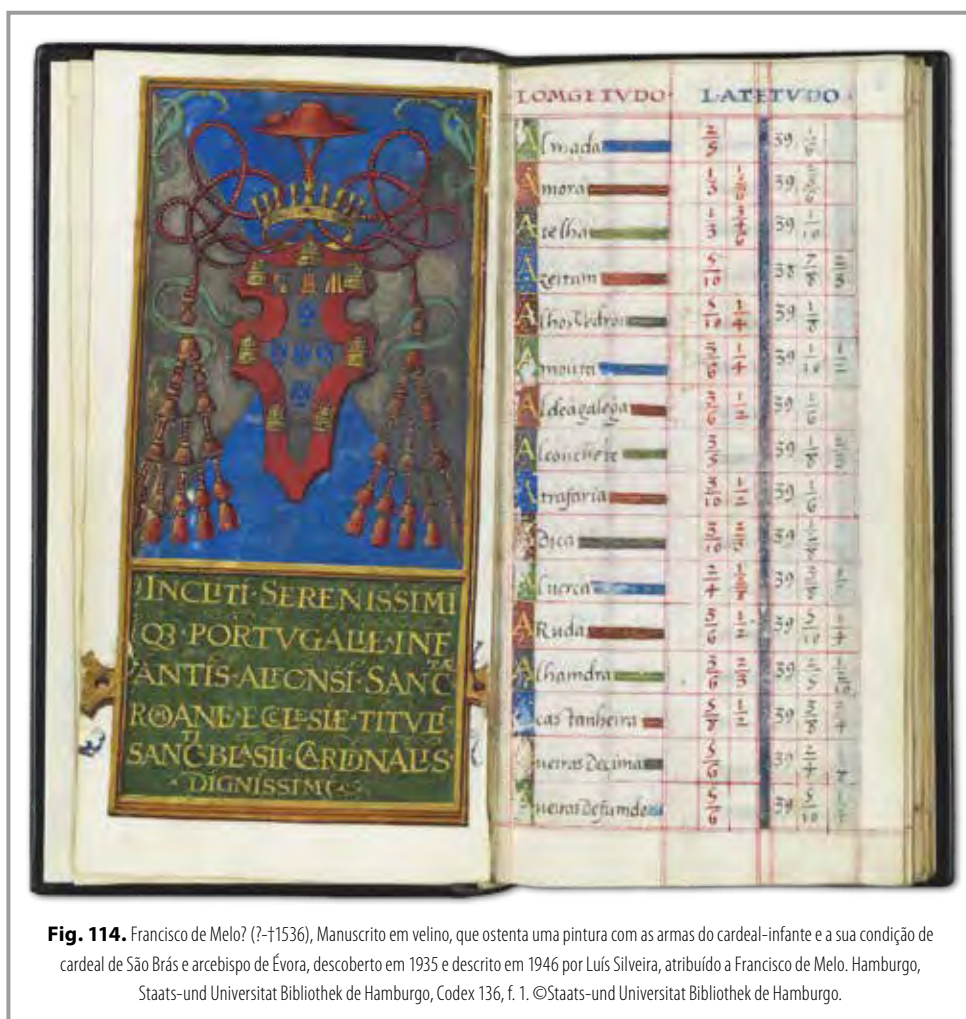 INCLITI·SERENISSIMI
Q3·PORTVGALIE·INF
ANTIS·ALFONSI·SANC
TÆ
ROMANE·ECCLESIE·TITVLI
SANC·BLASII·CARDINALIS·
TI
DIGNISSIMI
·LOMGETVDO· LATETVDO·
Almada 2/5 39 1/6
Amora 1/3 39
Arelha 1/3 39 1/10
Azeitam 5/10 38 7/8
Alhos Vedros 5/10 1/4 39 1/8
Amouta 3/6 1/4 39
Aldeagalega 3/6 1/2 39 1/6
Alconchete 3/5 39 1/8
Atrafaria 3/10 1/2 39 1/6
3/10 39
2/4 39
ARuda 3/6 1/2 39 5/10 1/4
Alhamdra 3/6 2/3 39
castanheira 5/8 1/2 39 3/8
5/6 39 2/4
5/6 39 5/10
Fig. 114. Francisco de Melo? (?-†1536), Manuscrito em velino, que ostenta uma pintura com as armas do cardeal-infante e a sua condição de
cardeal de São Brás e arcebispo de Évora, descoberto em 1935 e descrito em 1946 por Luís Silveira, atribuído a Francisco de Melo. Hamburgo,
Staats-und Universitat Bibliothek de Hamburgo, Codex 136, f. 1. ©Staats-und Universitat Bibliothek de Hamburgo.